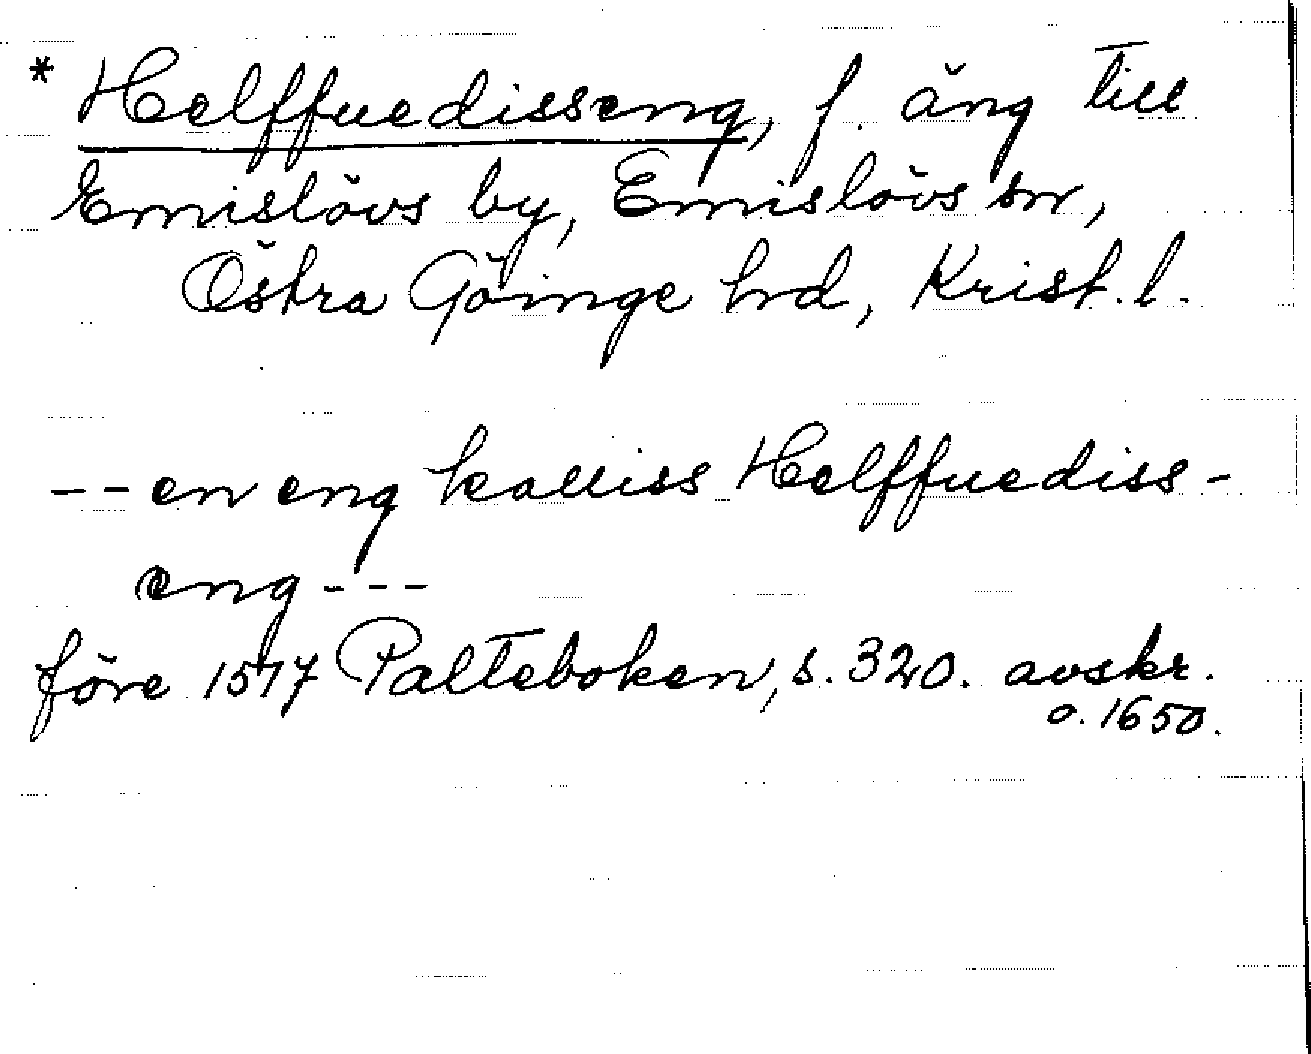 * Helffuedisseng, f. äng till
Emislövs by, Emislövs sn,
Östra Göinge hrd, Krist. l.
-- en eng kalliss Helffuediss-
eng ---
före 1517 Palteboken, s. 320. avskr.
o. 1650.